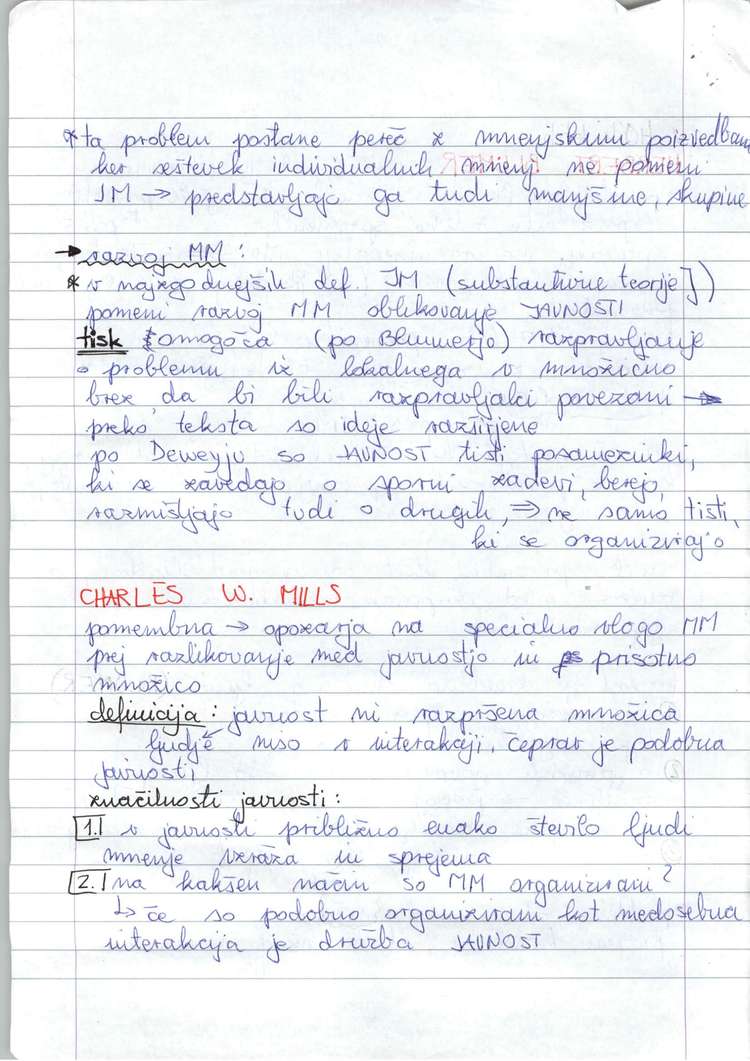 * ta problem postane pereč z mnenjskimi poizvedbam
ker seštevek individualnih mnenj ne pomeni
JM → predstavljajo ga tudi manjšine, skupine
→ razvoj MM :
* v najzgodnejših def. JM (substantivne teorije])
pomeni razvoj MM oblikovanje JAVNOSTI
tisk omogoča (po Blumerjo) razpravljanje
o problemu iz lokalnega v množično
brez da bi bili razpravljalci povezani →
preko teksta so ideje razširjene
po Deweyju so JAVNOST tisti posamezniki,
ki se zavedajo o sporni zadevi, berejo,
razmišljajo tudi o drugih, ⇒ ne samo tisti,
ki se organizirajo
CHARLES W. MILLS
pomembna → opozarja na specialno vlogo MM
prej razlikovanje med javnostjo in prisotno
množico
definicija : javnost ni razpršena množica
ljudje niso v interakciji, čeprav je podobna
javnosti
značilnosti javnosti :
1. v javnosti približno enako število ljudi
mnenje izraža in sprejema
2. na kakšen način so MM organizirani?
↳ če so podobno organizirani kot medosebna
interakcija je družba JAVNOST